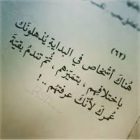 (٦٢)
هُناكَ أشخَاص في البدَاية يُذهلونَك
باختلافِهم ، بتميّزهم ، ثم تندمُ بقيّة
عُمركَ لأنّكَ عرفتَهم . !